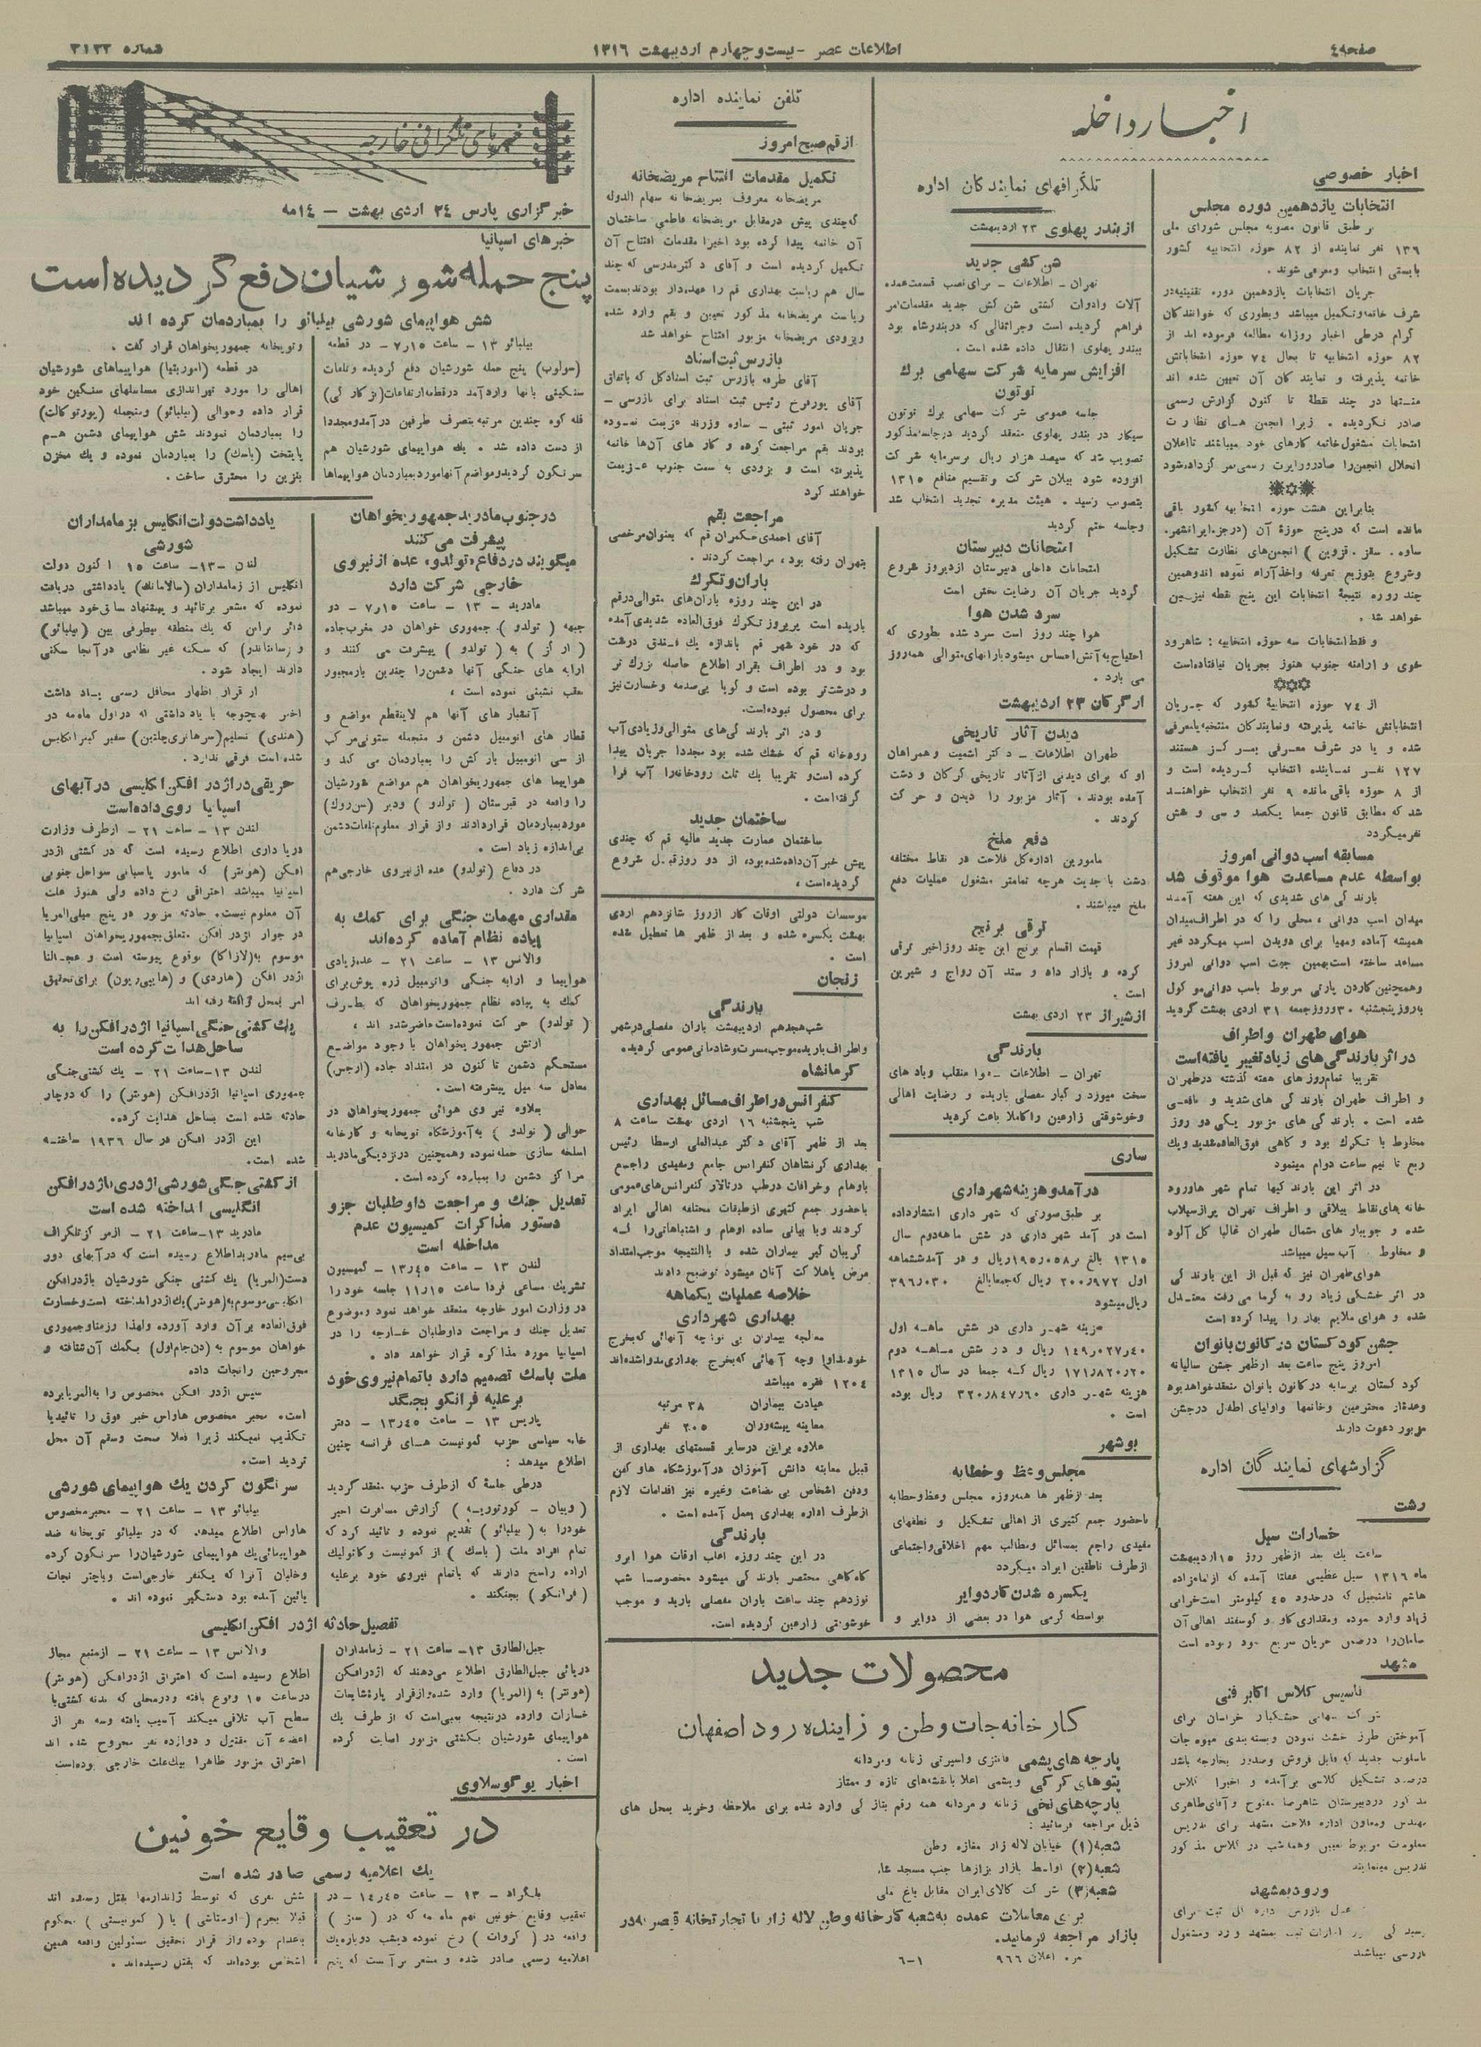 صفحه ٤
اطلاعات عصر - بیست و چهارم اردیبهشت ١٣١٦
شماره ٣١٢٢
اخبار داخله
اخبار خصوصی
انتخابات یازدهمین دوره مجلس
بر طبق قانون مصوبه مجلس شورای ملی
١٣٦ نفر نماینده از ٨٢ حوزه انتخابیه کشور
بایستی انتخاب و معرفی شوند .
جریان انتخابات یازدهمین دوره تقنینیه در
شرف خاتمه و تکمیل میباشد و بطوری که خوانندگان
گرام در طی اخبار روزانه مطالعه فرموده اند از
٨٢ حوزه انتخابیه تا بحال ٧٤ حوزه انتخاباتش
خاتمه پذیرفته و نمایندگان آن تعیین شده اند
منتها در چند نقطه تا کنون گزارش رسمی
صادر نگردیده . زیرا انجمن های نظارت
انتخابات مشغول خاتمه کارهای خود میباشند تا اعلان
انحلال انجمن را صادر و رایرت رسمی سر گرداد شود
بنابراین هشت حوزه انتخابیه کشور باقی
مانده است که در پنج حوزهٔ آن (درجز. ایرانشهر.
ساوه . سقز . قزوین ) انجمن های نظارت تشکیل
وشروع بتوزیع تعرفه واخذ آراء نموده اند و همین
چند روزه نتیجهٔ انتخابات این پنج نقطه نیز معین
خواهد شد .
و فقط انتخابات سه حوزه انتخابیه : شاهرود
خوی و ارامنه جنوب هنوز بجریان نیافتاده است
از ٧٤ حوزه انتخابیهٔ کشور که جریان
انتخاباتش خاتمه پذیرفته و نمایندگان منتخبه یا معرفی
شده و یا در شرف معرفی بمرکز هستند
١٢٧ نفر نماینده انتخاب گردیده است و
از ٨ حوزه باقی مانده ٩ نفر انتخاب خواهند
شد که مطابق قانون جمعا یکصد و سی و شش
نفر میگردد
مسابقه اسب دوانی امروز
بواسطه عدم مساعدت هوا موقوف شد
بارندگی های شدیدی که این هفته آمده
میدان اسب دوانی ، محلی را که در اطراف میدان
همیشه آماده ومهیا برای دویدن اسب میگردد غیر
مساعد ساخته است بهمین جهت اسب دوانی امروز
وهمچنین کاردن پارتی مربوط باسب دوانی موکول
به روز پنجشنبه ٣٠ و روز جمعه ٣١ اردی بهشت گردید
هوای طهران و اطراف
در اثر بارندگی های زیاد تغییر یافته است
تقریبا تمام روز های هفته گذشته در طهران
و اطراف طهران بارندگی های شدید و نافعی
شده است . بارندگی های مزبور یکی دو روز
مخلوط با تگرک بود و گاهی فوق العاده شدید و یک
ربع تا نیم ساعت دوام مینمود
در اثر این بارندگیها تمام شهر ها و رود
خانه های نقاط ییلاقی و اطراف تهران پر از سیلاب
شده و جویبار های شمال طهران غالبا گل آلود
و مخلوط . آب سیل میباشد
هوای طهران نیز که قبل از این بارندگی
در اثر خشکی زیاد رو به گرما می رفت معتدل
شده و هوای ملایم بهار را پیدا کرده است
جشن کودکستان در کانون بانوان
امروز پنج ساعت بعد از ظهر جشن سالیانه
کودکستان برسابه در کانون بانوان منعقد خواهد بود
وعدهٔ از محترمین و خانمها واولیای اطفال در جشن
مزبور دعوت دارند
گزارشهای نمایندگان اداره
رشت
خسارات سیل
ساعت یک بعد از ظهر روز ١٥ اردیبهشت
ماه ١٣١٦ سیل عظیمی آمده که از امامزاده
هاشم که در حدود ٤٥ کیلومتر است خرابی
زیاد وارد نموده ومقداری گاو و گوسفند اهالی آن
سامان را در ضمن جریان سریع خود ربوده است
مشهد
تاسیس کلاس اکابر فنی
شرکت سهامی خشکبار خراسان برای
آموختن طرز خشک نمودن وبسته بندی میوه جات
باسلوب جدید که قابل فروش وصدور بخارجه باشد
درصدد تشکیل کلاسی برآمده و اخیرا کلاس
مذکور در دبیرستان شاهرضا مفتوح و آقای طاهری
مهندس ومعاون اداره فلاحت مشهد برای تدریس
معلومات مربوط تعیین وهمه شب در کلاس مذکور
تدریس مینمایند
ورود بمشهد
بازرس اداره کل ثبت برای
رسیدگی امور ادارات ثبت بمشهد وارد ومشغول
بازرسی میباشند
تلگرافهای نمایندگان اداره
از بندر پهلوی ٢٣ اردیبهشت
شن کشی جدید
تهران - اطلاعات - برای نصب قسمت عمده
آلات وادوات کشتی شن کش جدید مقدمات امر
فراهم گردیده است وجراثقالی که در بندرشاه بود
ببندر پهلوی انتقال داده شده است .
افزایش سرمایه شرکت سهامی برک
توتون
جلسه عمومی شرکت سهامی برك توتون
سیگار در بندر پهلوی منعقد گردید در جلسه مذکور
تصویب شد که سیصد هزار ریال بر سرمایه شرکت
افزوده شود بیلان شرکت و تقسیم منافع ١٣١٥
بتصویب رسید . هیئت مدیره تجدید انتخاب شد
وجلسه ختم گردید
امتحانات دبیرستان
امتحانات داخلی دبیرستان از دیروز شروع
گردید جریان آن رضایت بخش است
سرد شدن هوا
هوا چند روز است سرد شده بطوری که
احتیاج به آتش احساس میشود بارانهای متوالی همه روز
می بارد .
از گرکان ٢٣ اردیبهشت
دیدن آثار تاریخی
طهران اطلاعات - دکتر اشمیت و همراهان
او که برای دیدنی از آثار تاریخی گرگان و دشت
آمده بودند . آثار مزبور را دیدن و حرکت
کردند .
دفع ملخ
مامورین اداره کل فلاحت در نقاط مختلفه
دشت با جدیت هرچه تمامتر مشغول عملیات دفع
ملخ میباشند .
ترقی برنج
قیمت اقسام برنج این چند روز اخیر ترقی
کرده و بازار داد و ستد آن رواج و شیرین
است .
از شیراز ٢٣ اردی بهشت
بارندگی
تهران - اطلاعات - هوا منقلب وباد های
سخت میوزد رگبار مفصلی باریده و رضایت اهالی
وخوشوقتی زارعین را کاملا باعث گردید
ساری
درآمد و هزینه شهرداری
بر طبق صورتی که شهر داری انتشار داده
است در آمد شهر داری در شش ماهه دوم سال
١٣١٥ بالغ بر ١٩٥٫٠٥٨ ریال و در آمد ششماهه
اول ٢٠٠٫٩٧٢ ریال که جمعا بالغ ٣٩٦٫٠٣٠
ریال میشود
هزینه شهر داری در شش ماهه اول
١٤٩٫٠٢٧٫٤٠ ریال و در شش ماهه دوم
١٧١٫٨٢٠٫٢٠ ریال که جمعا در سال ١٣١٥
هزینه شهر داری ٣٢٠٫٨٤٧٫٦٠ ریال بوده
است .
بوشهر
مجلس وعظ و خطابه
بعد از ظهر ها همه روزه مجلس وعظ وخطابه
باحضور جمع کثیری از اهالی تشکیل و نطقهای
مفیدی راجع بمسائل ومطالب مهم اخلاقی واجتماعی
از طرف ناطقین ایراد میگردد
یکسره شدن کار دوایر
بواسطه گرمی هوا در بعضی از دوایر و
تلفن نماینده اداره
از قم صبح امروز
تکمیل مقدمات افتتاح مریضخانه
مریضخانه معروف بمریضخانه سهام الدوله
که چندی پیش در مقابل مریضخانه فاطمی ساختمان
آن خاتمه پیدا کرده بود اخیرا مقدمات افتتاح آن
تکمیل گردیده است و آقای دکتر مدرسی که چند
سال هم ریاست بهداری قم را عهده دار بودند بسمت
ریاست مریضخانه مذکور تعیین و بقم وارد شده
وبزودی مریضخانه مزبور افتتاح خواهد شد
بازرس ثبت اسناد
آقای طرفه بازرس ثبت اسناد کل که باتفاق
آقای پورفرخ رئیس ثبت اسناد برای بازرسی -
جریان امور ثبتی - ساوه وزرند عزیمت نموده
بودند بقم مراجعت کرده و کار های آن ها خاتمه
پذیرفته است و بزودی به سمت جنوب عزیمت
خواهند کرد
مراجعت بقم
آقای احمدی حکمران قم که بعنوان مرخصی
بتهران رفته بود ، مراجعت کردند .
باران و تگرک
در این چند روزه باران های متوالی در قم
باریده است پریروز تگرک فوق العاده شدیدی آمده
که در خود شهر قم باندازه یک فندق درشت
بود و در اطراف بقرار اطلاع حاصله بزرک تر
و درشت تر بوده است و گویا بی صدمه و خسارت نیز
برای محصول نبوده است.
و در اثر بارندگی های متوالی و زیادی آب
رودخانه قم که خشک شده بود مجددا جریان پیدا
کرده است و تقریبا یک ثلث رودخانه را آب فرا
گرفته است .
ساختمان جدید
ساختمان عمارت جدید مالیه قم که چندی
پیش خبر آن داده شده بود ، از دو روز قبل شروع
گردیده است ،
موسسات دولتی اوقات کار از روز شانزدهم اردی
بهشت یکسره شده و بعد از ظهر ها تعطیل شده
است .
زنجان
بارندگی
شب هجدهم اردیبهشت باران مفصلی در شهر
واطراف باریده موجب مسرت و شادمانی عمومی گردید.
کرمانشاه
کنفرانس در اطراف مسائل بهداری
شب پنجشنبه ١٦ اردی بهشت ساعت ٨
بعد از ظهر آقای دکتر عبدالعلی ارسطا رئیس
بهداری کرمانشاهان کنفرانس جامع ومفیدی راجع
باوهام وخرافات در طب در تالار کنفرانس های عمومی
باحضور جمع کثیری از طبقات مختلفه اهالی ایراد
کردند وبا بیانی ساده اوهام و اشتباهاتی را که
گریبان گیر بیماران شده و بالنتیجه موجب امتداد
مرض یا هلاکت آنان میشود توضیح دادند
خلاصه عملیات یکماهه
بهداری شهرداری
معالجه بیماران بی نوا چه آنهائی که بخرج
خود مداوا وچه آنهائی که بخرج بهداری مداوا شده اند
١٢٠٤ فقره میباشد
عیادت بیماران ٣٨ مرتبه
معاینه پیشه وران ٣٠٥ نفر
علاوه براین در سایر قسمتهای بهداری از
قبیل معاینه دانش آموزان در آموزشگاه ها و کفن
ودفن اشخاص بی بضاعت وغیره نیز اقدامات لازم
از طرف اداره بهداری بعمل آمده است .
بارندگی
در این چند روزه اغلب اوقات هوا ابر و
گاه گاهی مختصر بارندگی میشود مخصوصا شب
نوزدهم چند ساعت باران مفصلی بارید و موجب
خوشوقتی زارعین گردیده است.
محصولات جدید
کارخانه جات وطن و زاینده رود اصفهان
پارچه های پشمی فاستری واسپرتی زنانه ومردانه
پتوهای کرکی وپشمی اعلا بانقشه های تازه و ممتاز
پارچه های نخی زنانه و مردانه همه رقم بتازگی وارد شده برای ملاحظه وخرید بمحل های
ذیل مراجعه فرمائید :
شعبه (١) خیابان لاله زار مغازه وطن
شعبه (٢) اواسط بازار بزازها جنب مسجد شاه
شعبه (٣) شرکت کالای ایران مقابل باغ ملی
برای معاملات عمده به شعبه کارخانه وطن لاله زار یا تجارتخانه قیصریه در
بازار مراجعه فرمائید.
نمره اعلان ٩٦٦
٦-١
خبرهای تلگرافی خارجه
خبرگزاری پارس ٢٤ اردی بهشت - ١٤ مه
خبر های اسپانیا
پنج حمله شورشیان دفع گردیده است
شش هواپیمای شورشی بیلبائو را بمباردمان کرده اند
بیلبائو ١٣ - ساعت ٧٫١٥ - در قطعه
(سولوب) پنج حمله شورشیان دفع گردیده وتلفات
سنگینی بآنها وارد آمد در قطعه ارتفاعات (بزکارگی)
قله کوه چندین مرتبه بتصرف طرفین درآمد ومجددا
از دست داده شد . یک هواپیمای شورشیان هم
سرنگون گردید ومواضع آنها مورد بمباردمان هواپیماها
وتوپخانه جمهوریخواهان قرار گفت ،
در قطعه (اموربتیا) هواپیماهای شورشیان
اهالی را مورد تیراندازی مسلسلهای سنگین خود
قرار داده وحوالی (بیلبائو) ومنجمله (پورتوگالت)
را بمباردمان نمودند شش هواپیمای دشمن هم
پایتخت (باسک) را بمباردمان نموده و یک مخزن
بنزین را محترق ساخت .
در جنوب مادرید جمهوریخواهان
پیشرفت می کنند
میگویند در دفاع «تولدو» عده از نیروی
خارجی شرکت دارد
مادرید - ١٣ - ساعت ٧٫١٥ - در
جبهه ( تولدو ) جمهوری خواهان در مغرب جاده
( ارگز ) به ( تولدو ) پیشرفت می کنند و
ارابه های جنگی آنها دشمن را چندین بار مجبور
عقب نشینی نموده است ،
آتشبار های آنها هم لاینقطع مواضع و
قطار های اتومبیل دشمن و منجمله ستونی مرکب
از سی اتومبیل بارکش را بمباردمان می کند و
هواپیما های جمهوریخواهان هم مواضع شورشیان
را واقعه در قبرستان ( تولدو ) ودیر (سن روک)
مورد بمباردمان قراردادند واز قرار معلوم تلفات دشمن
بی اندازه زیاد است .
در دفاع (تولدو) عده از نیروی خارجی هم
شرکت دارد .
مقداری مهمات جنگی برای کمک به
پیاده نظام آماده کرده اند
والانس ١٣ - ساعت ٢١ - عده زیادی
هواپیما و ارابه جنگی واتومبیل زره پوش برای
کمک به پیاده نظام جمهوریخواهان که بطرف
( تولدو ) حرکت نموده است حاضر شده اند ،
ارتش جمهوریخواهان با وجود مواضع
مستحکم دشمن تا کنون در امتداد جاده (ارجس)
معادل سه میل پیشرفته است .
بعلاوه نیروی هوائی جمهوریخواهان در
حوالی ( تولدو ) به آموزشگاه توپخانه و کارخانه
اسلحه سازی حمله نموده وهمچنین در نزدیکی مادرید
مراکز دشمن را بمبارده کرده است.
تعدیل جنک و مراجعت داوطلبان جزو
دستور مذاکرات کمیسیون عدم
مداخله است
لندن ١٣ - ساعت ١٣٫٤٥ - کمیسیون
تشریک مساعی فردا ساعت ١١٫١٥ جلسه خود را
در وزارت امور خارجه منعقد خواهد نمود وموضوع
تعدیل جنک و مراجعت داوطلبان خارجه را در
اسپانیا مورد مذاکره قرار خواهد داد .
ملت باسک تصمیم دارد با تمام نیروی خود
بر علیه فرانکو بجنگد
پاریس ١٣ - ساعت ١٣٫٤٥ - دفتر
خانه سیاسی حزب کمونیست های فرانسه چنین
اطلاع میدهد :
در طی جلسهٔ که از طرف حزب منعقد گردید
( ویبان - کورتوریه ) گزارش مسافرت اخیر
خود را به ( بیلبائو ) تقدیم نموده و تائید کرد که
تمام افراد ملت ( باسک ) از کمونیست و کاتولیک
اراده راسخ دارند که باتمام نیروی خود بر علیه
( فرانکو ) بجنگند .
یادداشت دولت انگلیس بزمامداران
شورشی
لندن -١٣- ساعت ١٥ اکنون دولت
انگلیس از زمامداران (سالامانک) یادداشتی دریافت
نموده که مشعر بر تائید و پیشنهاد سابق خود میباشد
دائر براین که یک منطقه بیطرفی بین (بیلبائو)
و (سانتاندر) که سکنه غیر نظامی در آنجا سکنی
دارند ایجاد شود .
از قرار اظهار محافل رسمی یادداشت
اخیر بهیچوجه با یادداشتی که در اول ماه مه در
(هندی) تسلیم (سرهانری چلتین) سفیر کبیر انگلیس
شده است فرقی ندارد .
حریقی در اژدر افکن انگلیسی در آبهای
اسپانیا روی داده است
لندن ١٣ - ساعت ٢١ - از طرف وزارت
دریاداری اطلاع رسیده است که در کشتی اژدر
افکن (هونتر) که مامور پاسبانی سواحل جنوبی
اسپانیا میباشد احتراقی رخ داده ولی هنوز علت
آن معلوم نیست. حادثه مزبور در پنج میلی المریا
در جوار اژدر افکن متعلق بجمهوریخواهان اسپانیا
موسوم به(لازاگا) بوقوع پیوسته است و عجالتا
اژدر افکن (هاردی) و (هایپریون) برای تحقیق
امر بمحل واقعه رفته اند
یک کشتی جنگی اسپانیا اژدر افکن را به
ساحل هدایت کرده است
لندن ١٣-ساعت ٢١ - یک کشتی جنگی
جمهوری اسپانیا اژدر افکن (هونتر) را که دوچار
حادثه شده است بساحل هدایت کرده.
این اژدر افکن در سال ١٩٣٦ ساخته
شده است .
از کشتی جنگی شورشی اژدری باژدر افکن
انگلیسی انداخته شده است
مادرید ١٣-ساعت ٢١ - از مرکز تلگراف
بی سیم مادرید اطلاع رسیده است که در آبهای دور
دست (المریا) یک کشتی جنگی شورشیان باژدر افکن
انگلیسی موسوم به(هونتر) یک اژدر انداخته است و خسارت
فوق العاده بر آن وارد آورده ولهذا رزمناو جمهوری
خواهان موسوم به (دن جام اول) بکمک آن شتافته و
مجروحین را نجات داده
سپس اژدر افکن مخصوص را به المریا برده
است. مخبر مخصوص هاواس خبر فوق را تائید یا
تکذیب نمیکند زیرا فعلا صحت وسقم آن محل
تردید است.
سرنگون کردن یک هواپیمای شورشی
بیلبائو ١٣ - ساعت ٢١ - مخبر مخصوص
هاواس اطلاع میدهد که در بیلبائو توپخانه ضد
هواپیمائی یک هواپیمای شورشیان را سرنگون کرده
وخلبان آنرا که یکنفر خارجی است وباچتر نجات
پائین آمده بود دستگیر نموده اند .
تفصیل حادثه اژدر افکن انگلیسی
جبل الطارق ١٣- ساعت ٢١ - زمامداران
دریائی جبل الطارق اطلاع می دهند که اژدر افکن
(هونتر) به (المریا) وارد شده واز قرار پارهٔ شایعات
خسارات وارده در نتیجه بمبی است که از طرف یک
هواپیمای شورشیان بکشتی مزبور اصابت کرده
است .
والانس ١٣ - ساعت ٢١ - از منبع مجاز
اطلاع رسیده است که احتراق اژدر افکن (هونتر)
در ساعت ١٥ وقوع یافته ودر محلی که بدنه کشتی با
سطح آب تلاقی میکند آسیب یافته وسه نفر از
اعضاء آن مقتول و دوازده نفر مجروح شده اند
احتراق مزبور ظاهرا بیک علت خارجی بوده است
اخبار یوگوسلاوی
در تعقیب وقایع خونین
یک اعلامیه رسمی صادر شده است
بلگراد - ١٣ - ساعت ١٤٫٤٥ - در
تعقیب وقایع خونین نهم ماه مه که در ( سنژ )
واقعه در ( کروات ) رخ نموده دیشب دوباره یک
اعلامیه رسمی صادر شده و مشعر بر آنست که پنج
شش نفری که توسط ژاندارمها بقتل رسیده اند
قبلا بجرم (اوستاشی) یا ( کمونیستی ) محکوم
باعدام بوده واز قرار تحقیق مسئولین واقعه همین
اشخاص بوده اند که بقتل رسیده اند .